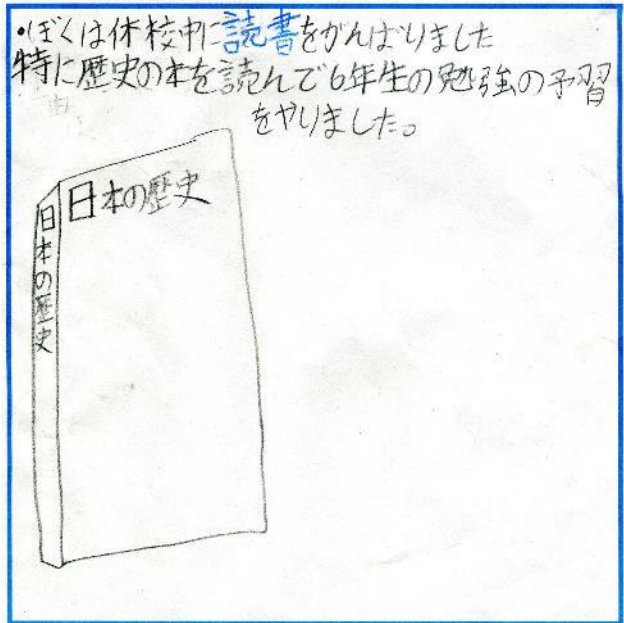 ・ぼくは休校中に読書をがんばりました
特に歴史の本を読んで6年生の勉強の予習
をやりました。
日本の歴史
日本の歴史